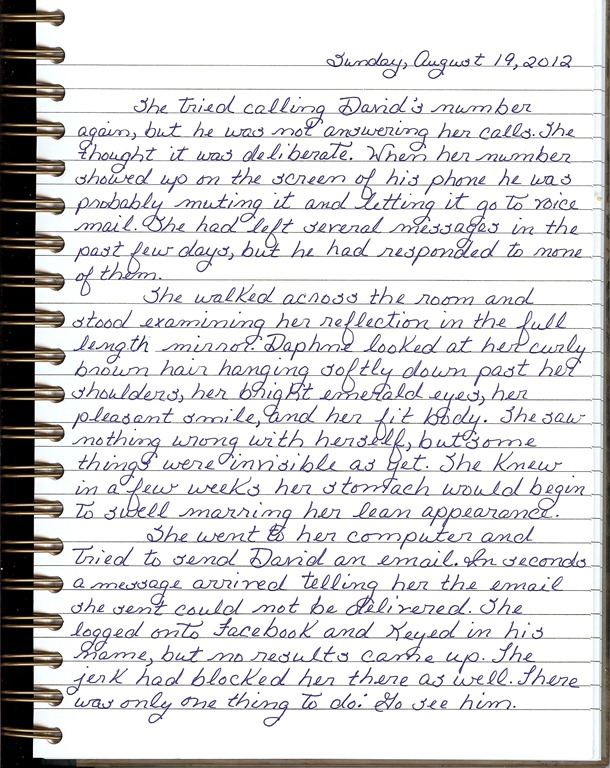 Sunday, August 19, 2012
She tried calling David's number
again, but he was not answering her calls. She
thought it was deliberate. When her number
showed up on the screen of his phone he was
probably muting it and letting it go to voice
mail. She had left several messages in the
past few days, but he had responded to none
of them.
She walked across the room and
stood examining her reflection in the full
length mirror. Daphne looked at her curly
brown hair hanging softly down past her
shoulders, her bright emerald eyes, her
pleasant smile, and her fit body. She saw
nothing wrong with herself, but some
things were invisible as yet. She knew
in a few weeks her stomach would begin
to swell marring her lean appearance.
She went to her computer and
tried to send David an email. In seconds
a message arrived telling her the email
she sent could not be delivered. She
logged onto Facebook and keyed in his
name, but no results came up. The
jerk had blocked her there as well. There
was only one thing to do: Go see him.